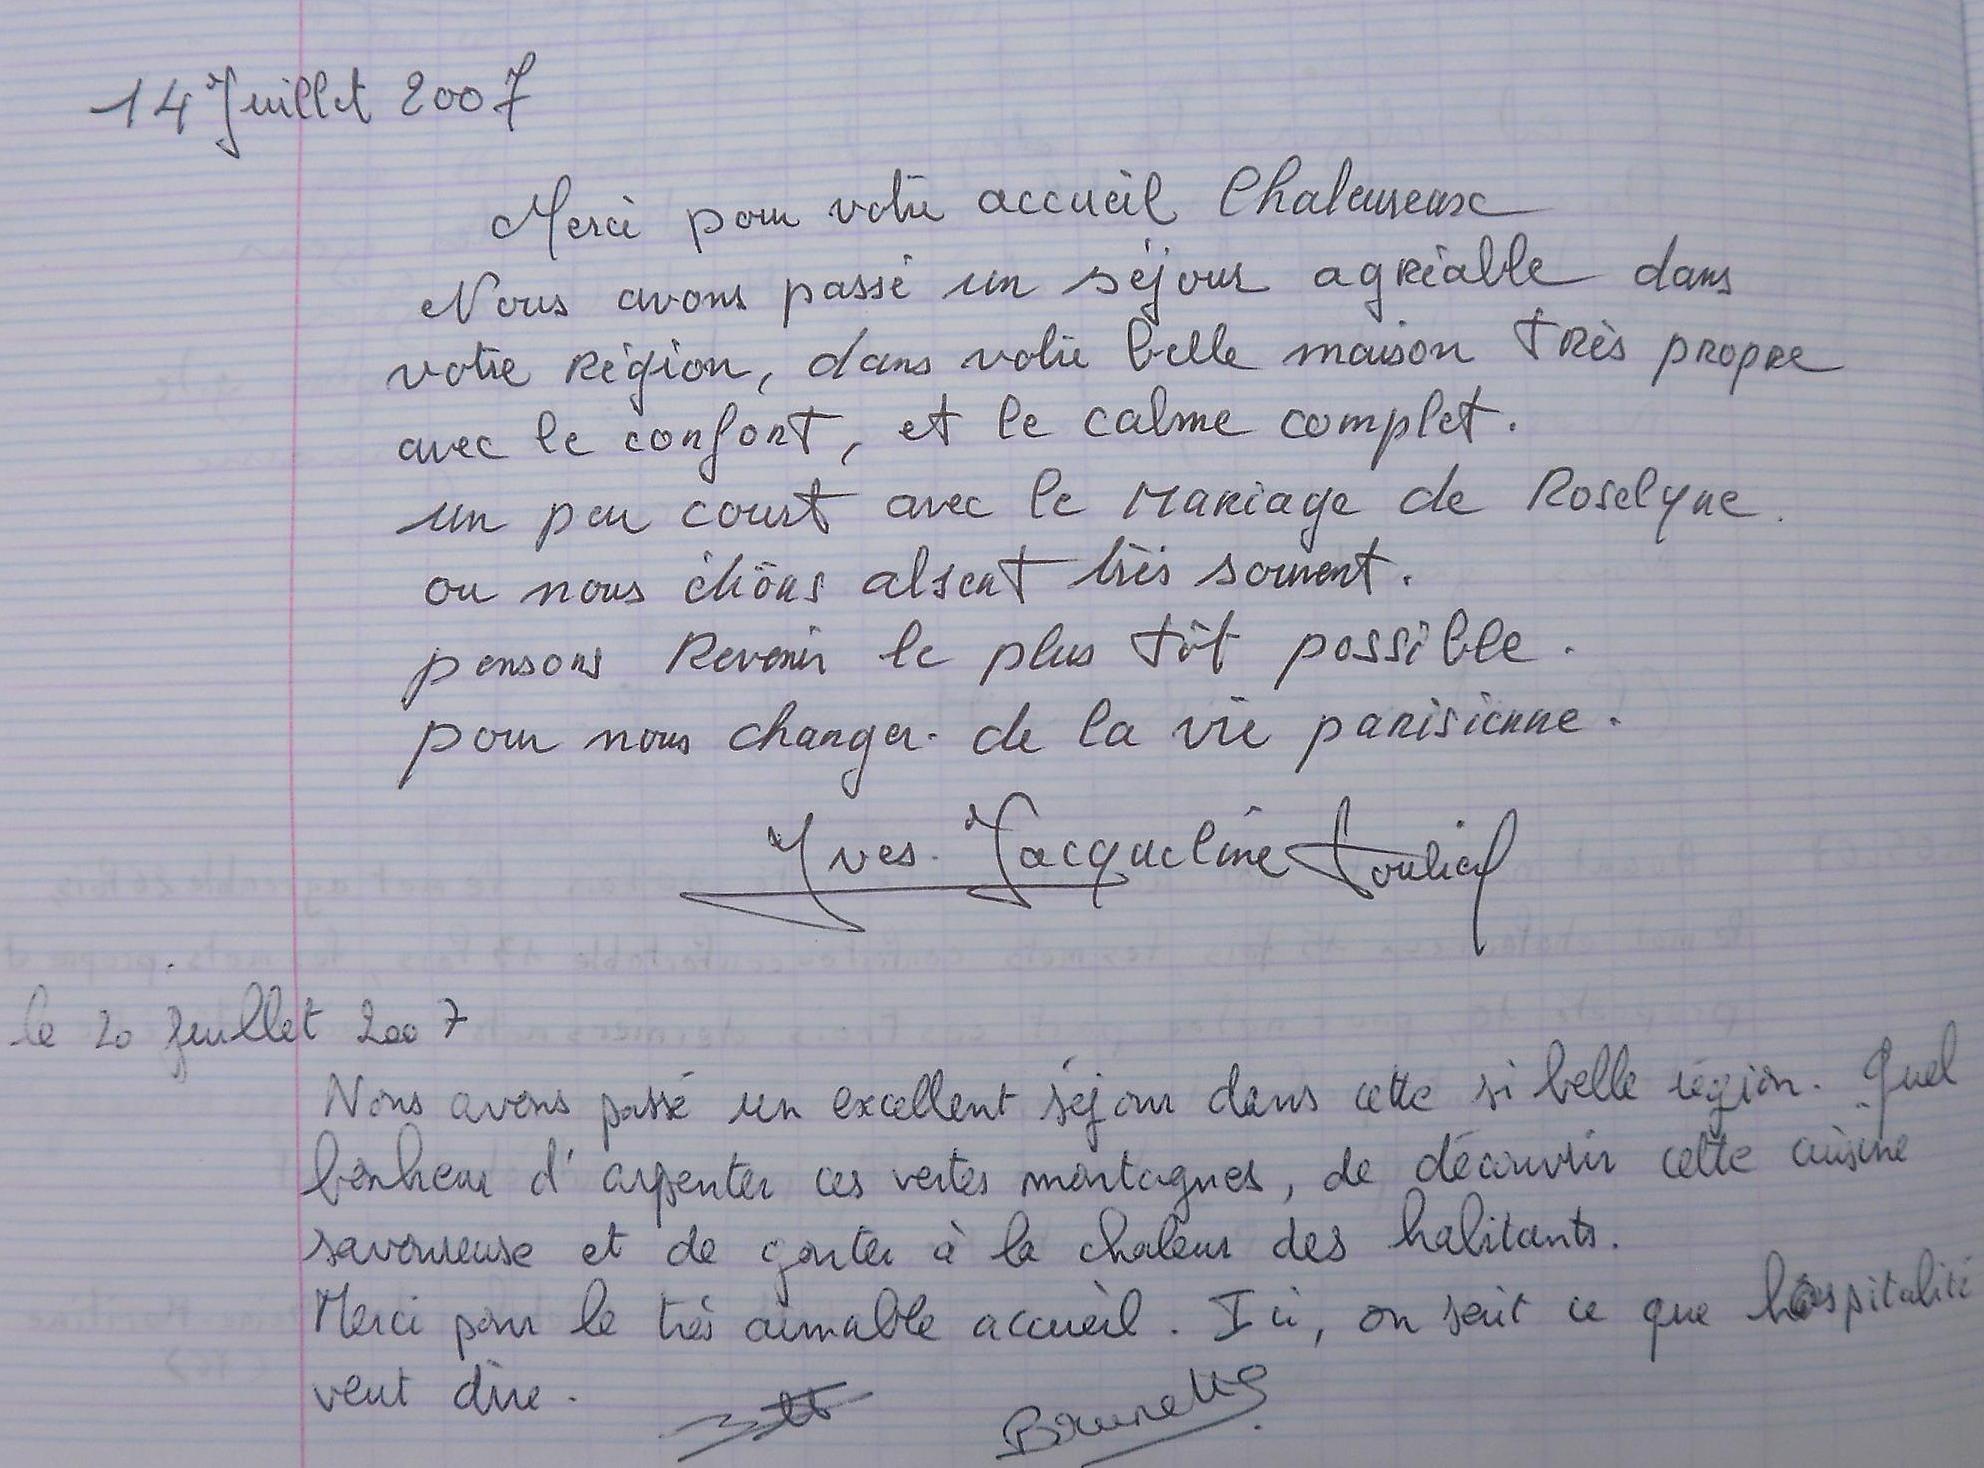 14 Juillet 2007
Merci pour votre accueil Chaleureux
Nous avons passé un séjour agréable dans
votre Région, dans votre belle maison très propre
avec le confort, et le calme complet.
un peu court avec le Mariage de Roselyne.
ou nous étions absent très souvent.
pensons Revenir le plus tôt possible.
pour nous changer. de la vie parisienne.
Yves. Jacqueline
le 20 juillet 2007
Nous avons passé un excellent séjour dans cette si belle région. Quel
bonheur d'arpenter ces vertes montagnes, de découvrir cette cuisine
savoureuse et de gouter à la chaleur des habitants.
Merci pour le très aimable accueil. Ici, on sait ce que hospitalité
veut dire.